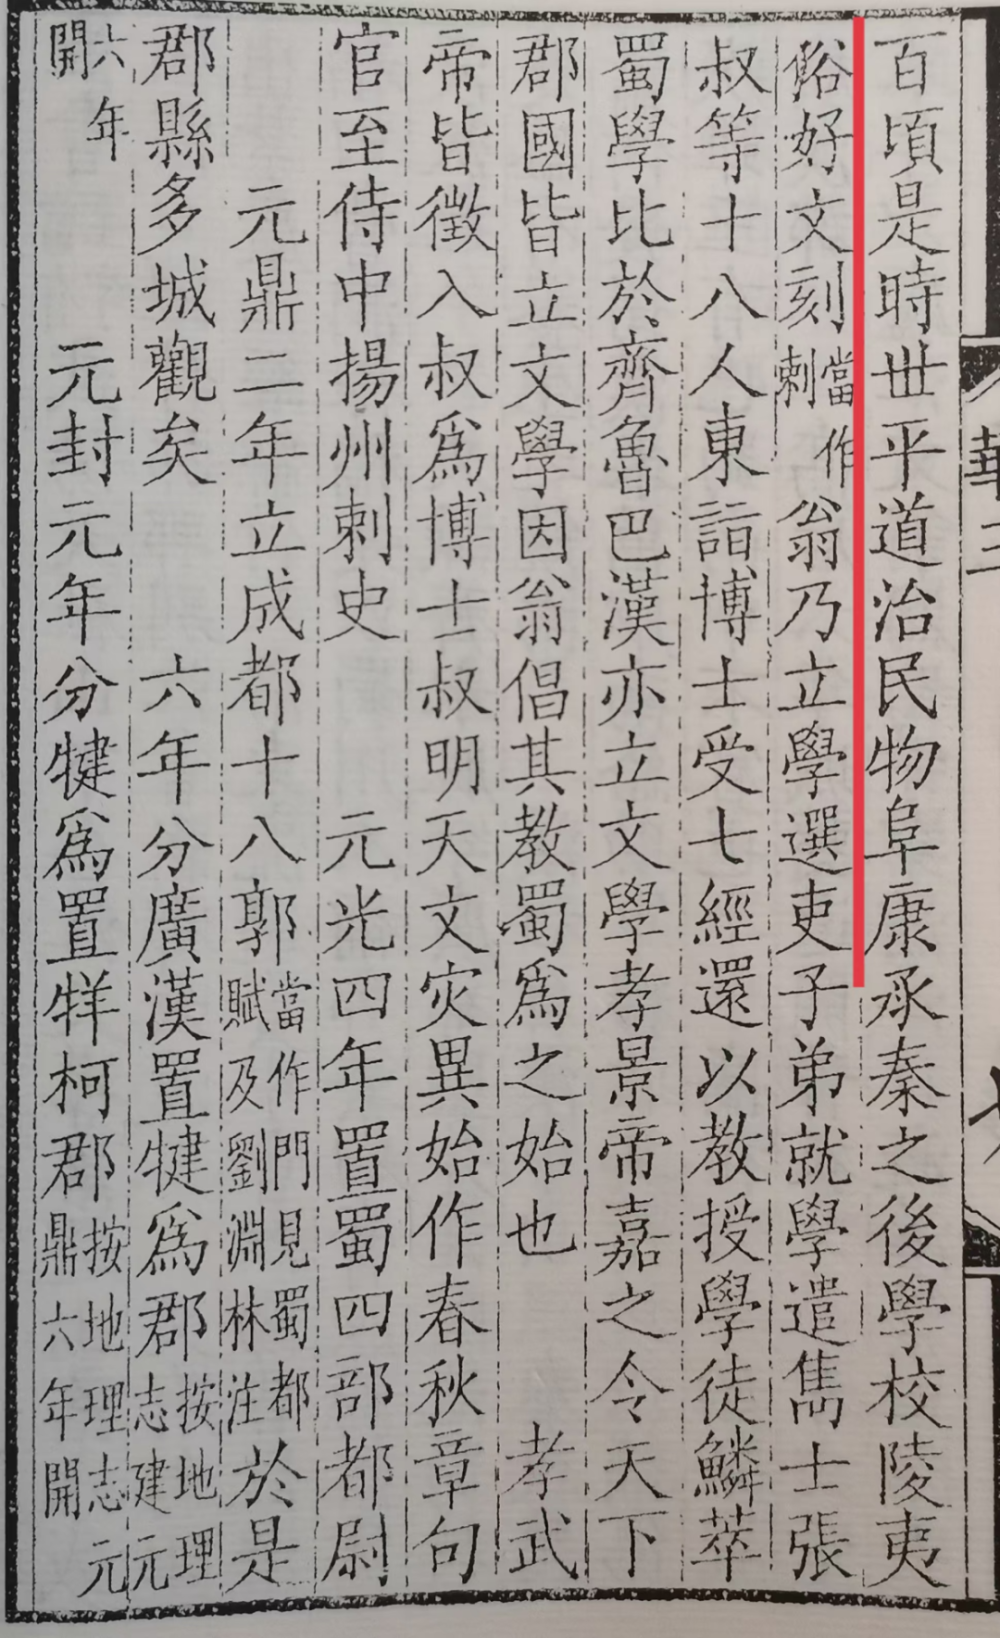 百頃是時世平道治民物阜康承秦之後學校陵夷
俗好文刻當作剌翁乃立學選吏子弟就學遣雋士張
叔等十八人東詣博士受七經還以教授學徒鱗萃
蜀學比於齊魯巴漢亦立文學孝景帝嘉之令天下
郡國皆立文學因翁倡其教蜀爲之始也　孝武
帝皆徵入叔爲博士叔明天文灾異始作春秋章句
官至侍中揚州刺史　元光四年置蜀四部都尉
元鼎二年立成都十八郭當作門見蜀都賦及劉淵林注於是
郡縣多城觀矣　六年分廣漢置犍爲郡按地理志建元
六年開　元封元年分犍爲置牂柯郡按地理志元鼎六年開